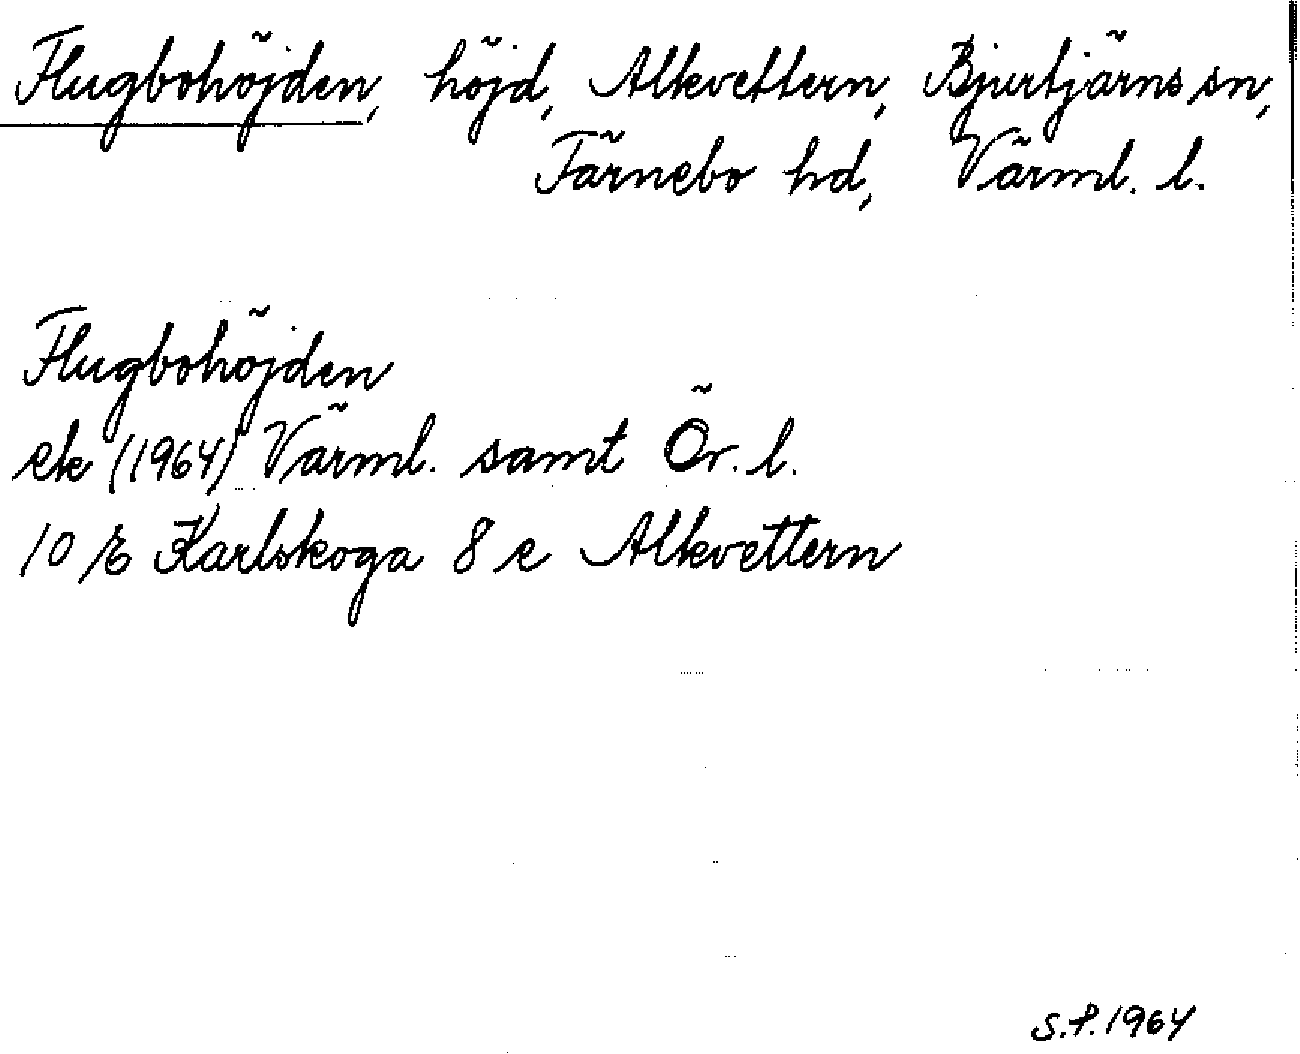 Flugbohöjden, höjd, Alkvettern, Bjurtjärns sn,
Färnebo hd, Värml. l.
Flugbohöjden
ek (1964) Värml. samt Ör. l.
10 E Karlskoga 8 e Alkvettern
S.F. 1964